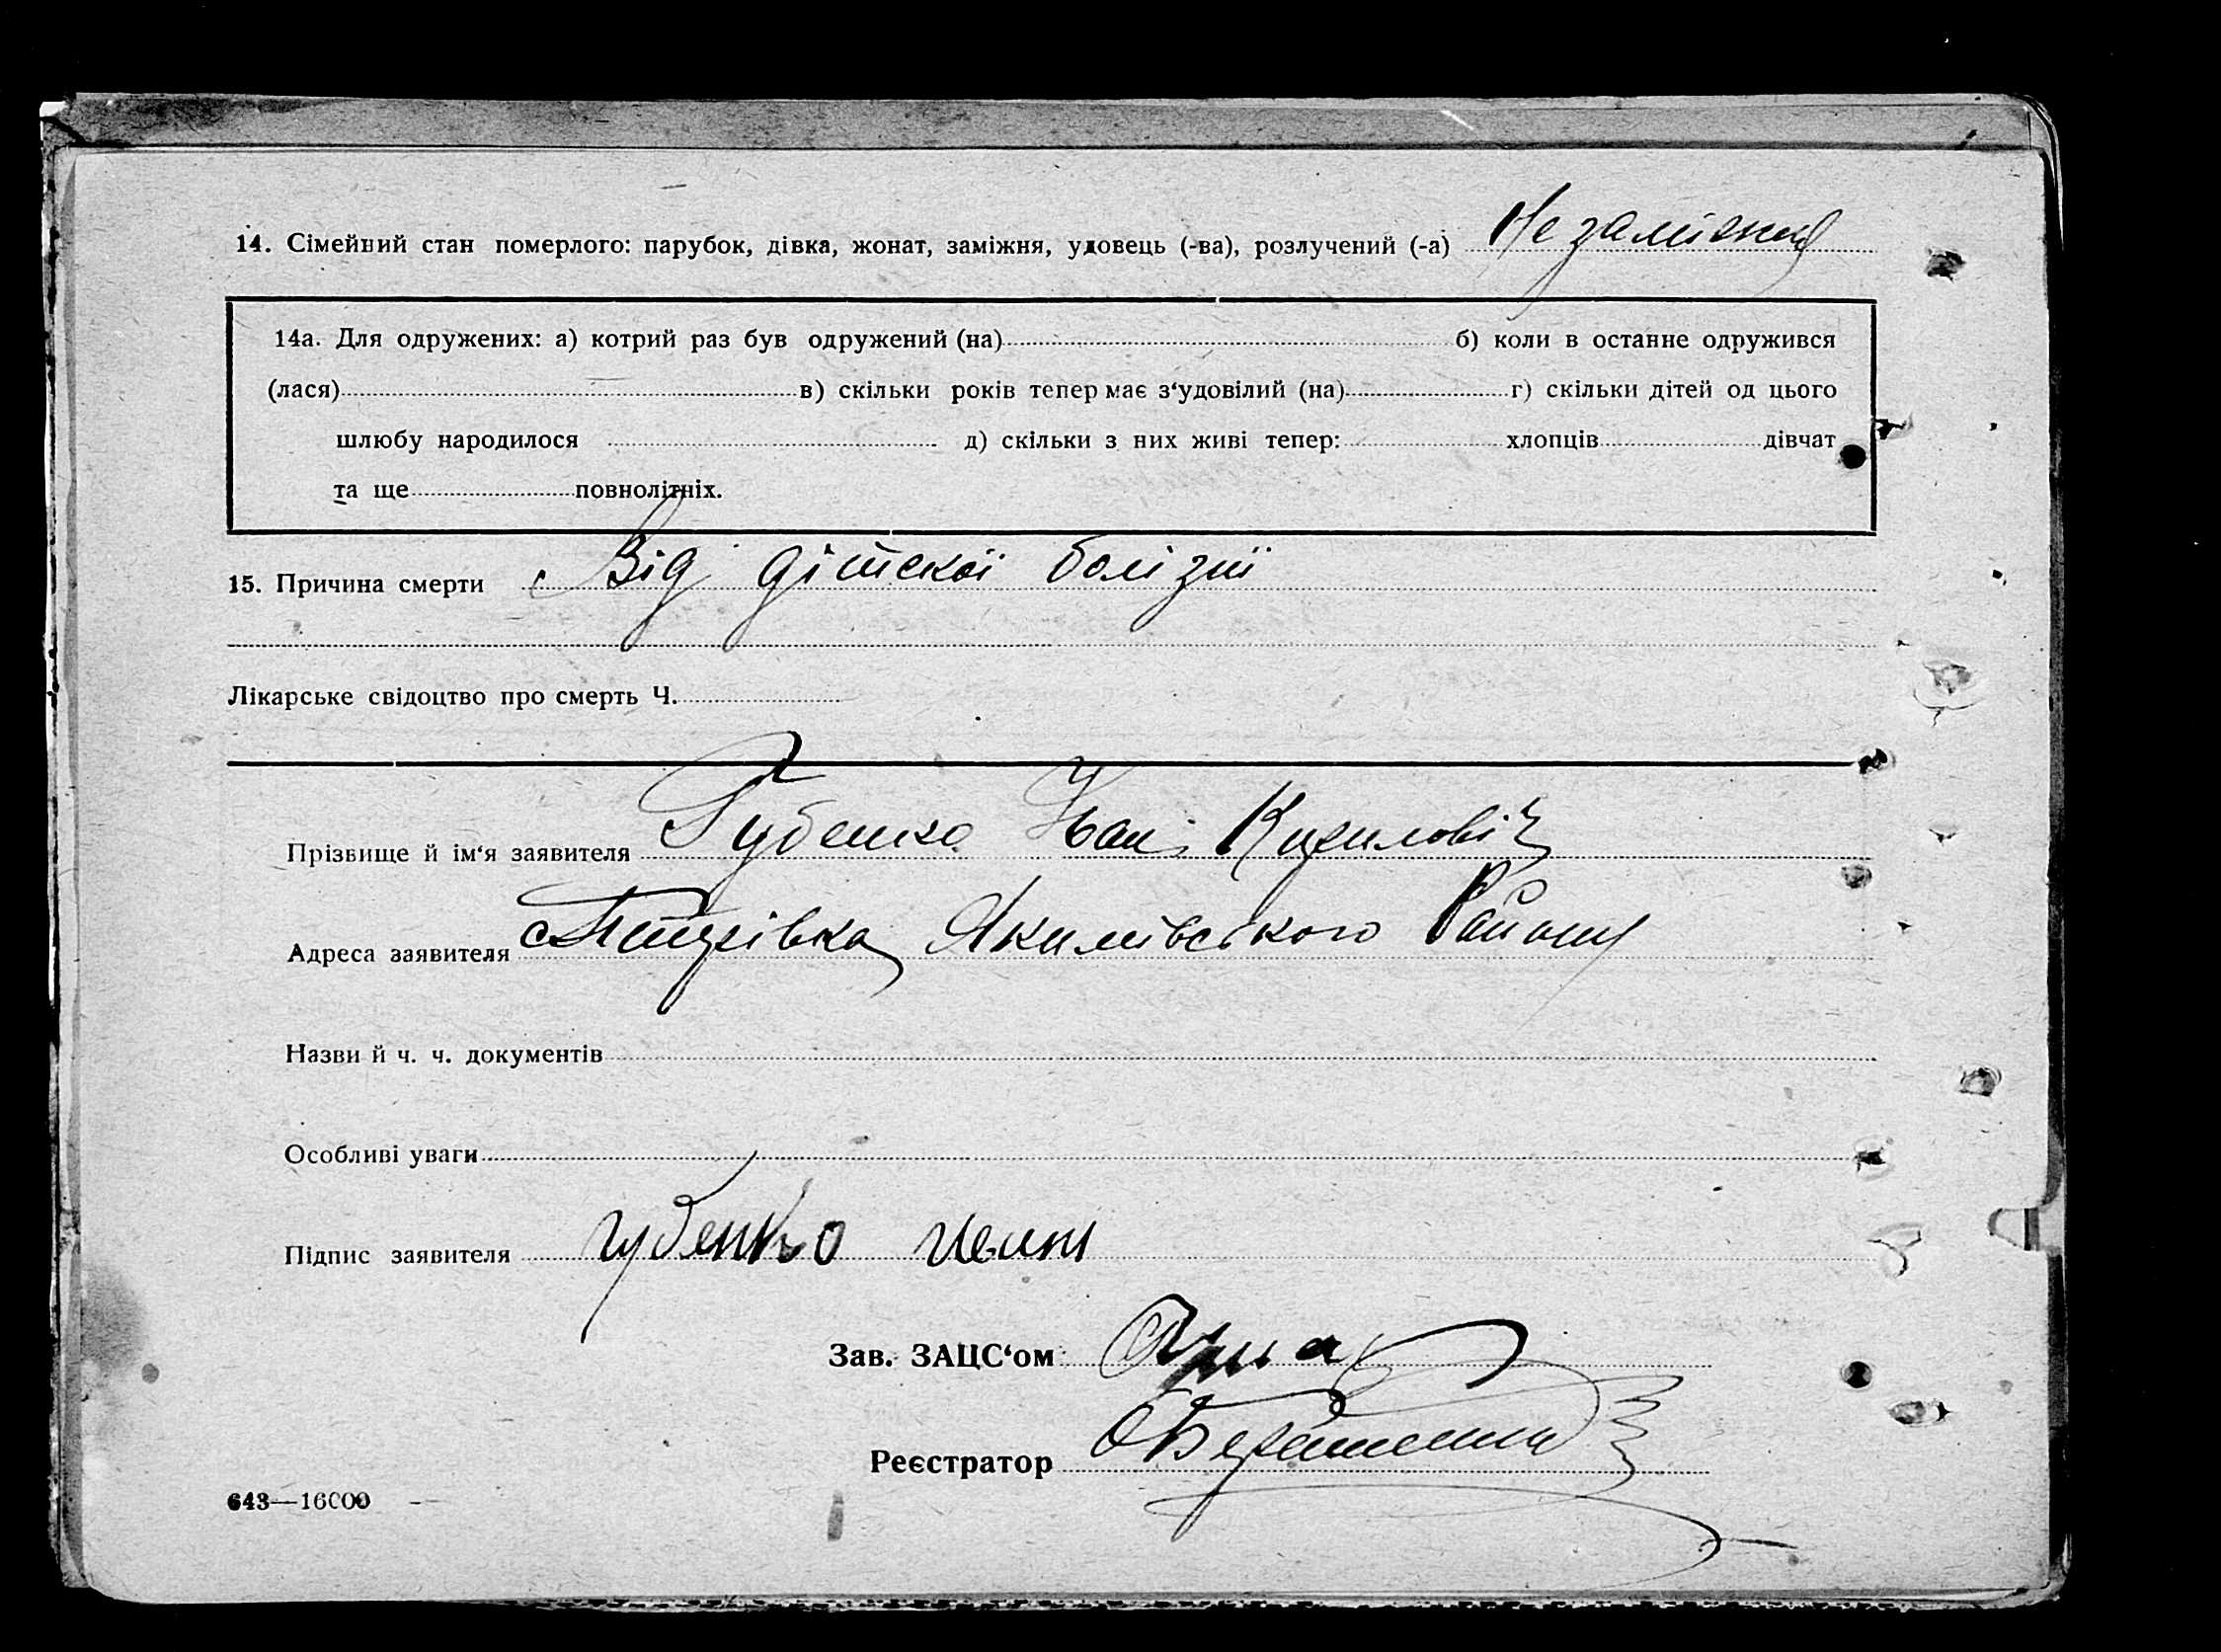 14. Сімейний стан померлого: парубок, дівка, жонат, заміжня, удовець (-ва), розлучений (-а) Незаміжня
14а. Для одружених: а) котрий раз був одружений (на) б) коли в останне одружився
(лася) в) скільки років тепер має з‘удовілий (на) г) скільки дітей од цього
шлюбу народилося д) скільки з них живі тепер: хлопців дівчат
та ще повнолітніх.
15. Причина смерти Від дітской болізні
Лікарське свідоцтво про смерть Ч.
Прізвище й ім‘я заявителя Губенко Іван Кирилович
Адреса заявителя Якимівського Району
Назви й ч. ч. документів
Особливі уваги
Підпис заявителя губенко иван
Зав. ЗАЦС‘ом
Реєстратор
643—16000